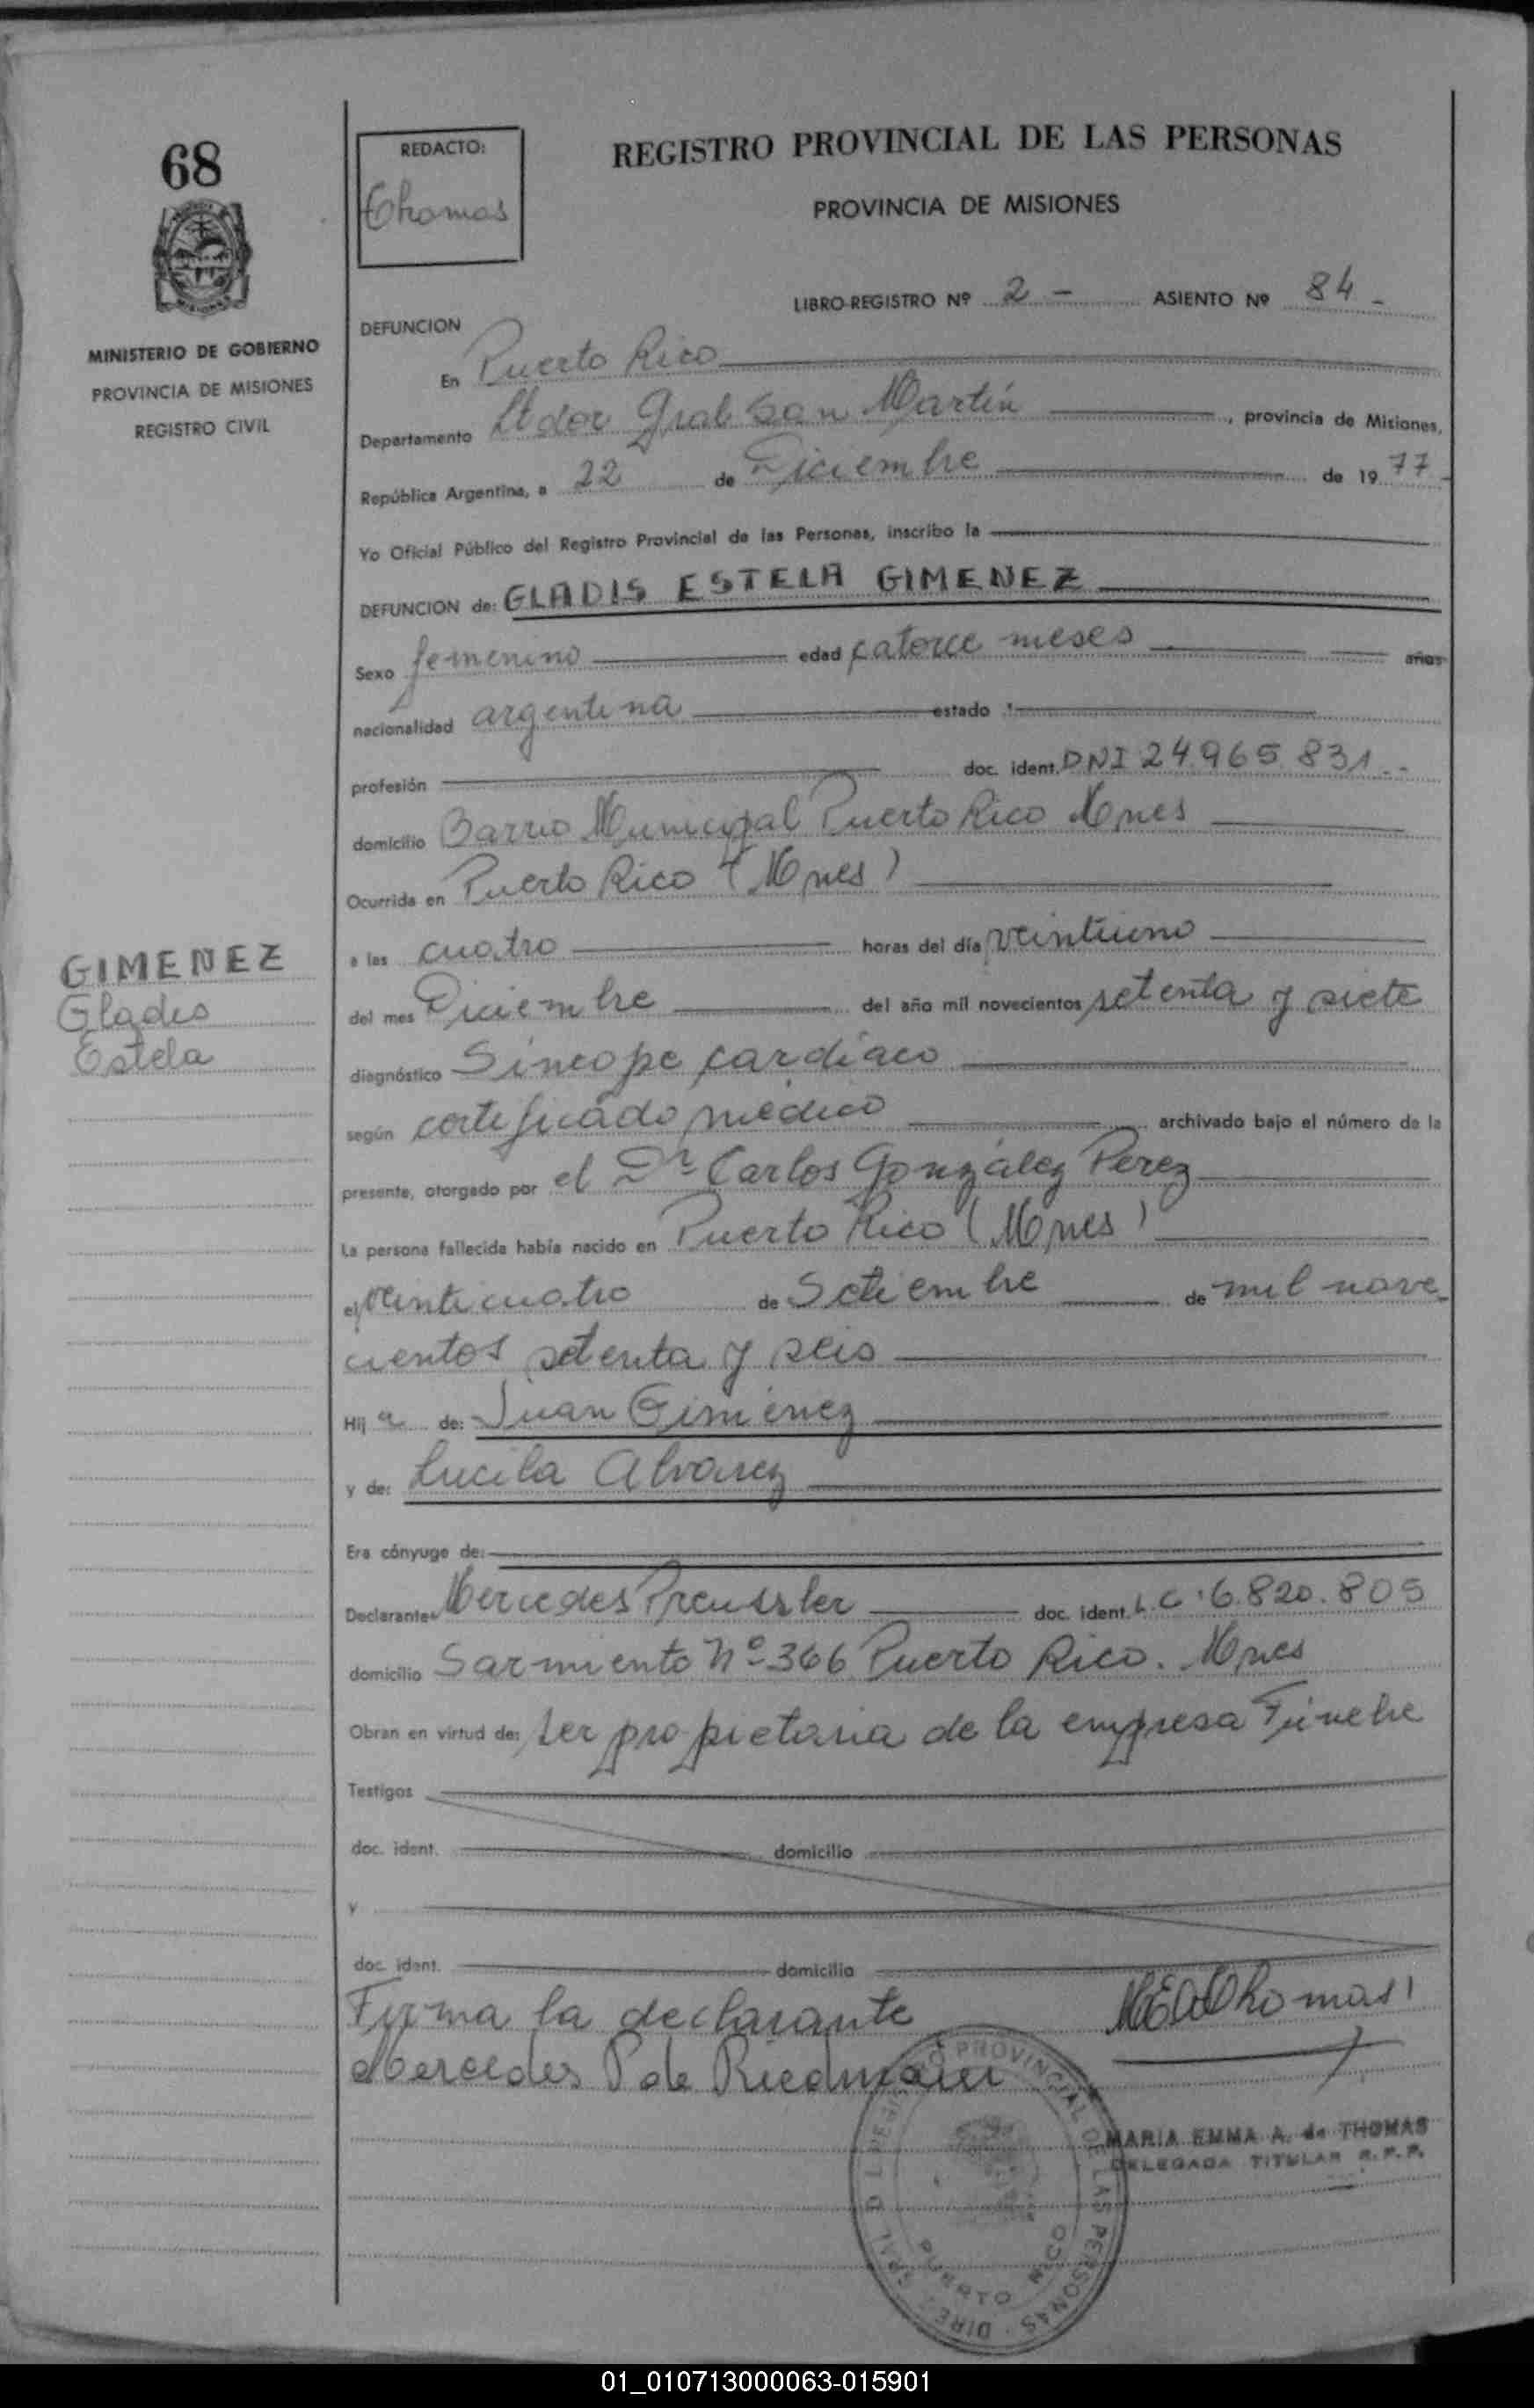 68
REDACTO:
Thomas
REGISTRO PROVINCIAL DE LAS PERSONAS
PROVINCIA DE MISIONES
MINISTERIO DE GOBIERNO
PROVINCIA DE MISIONES
REGISTRO CIVIL
LIBRO-REGISTRO Nº 2 - ASIENTO Nº 84 -
DEFUNCION
En Puerto Rico
Departamento Ltdor Gral San Martín, provincia de Misiones,
República Argentina, a 22 de Diciembre de 1977
Yo Oficial Público del Registro Provincial de las Personas, inscribo la
DEFUNCION de: GLADIS ESTELA GIMENEZ
Sexo femenino edad catorce meses años
nacionalidad argentina estado
profesión doc. ident. DNI 24.965.831.-
domicilio Barrio Municipal Puerto Rico Mnes
Ocurrida en Puerto Rico (Mnes)
GIMENEZ
Gladis
Estela
a las cuatro horas del día veintiuno
del mes Diciembre del año mil novecientos setenta y siete
diagnóstico Sincope cardíaco
según certificado médico archivado bajo el número de la
presente, otorgado por el Dr Carlos González Perez
La persona fallecida había nacido en Puerto Rico (Mnes)
el veinticuatro de Setiembre de mil nove
cientos setenta y seis
Hij a de: Juan Gimenez
y de: Lucila Alvarez
Era cónyuge de:
Declarante: Mercedes Preussler doc. ident. L.C. 6.820.805
domicilio Sarmiento Nº 366 Puerto Rico. Mnes
Obran en virtud de: ser propietaria de la empresa Fúnebre
Testigos
doc. ident. domicilio
y
doc. ident. domicilio
Firma la declarante
Mercedes P de Riedmaier
MEAThomas
MARIA EMMA A. de THOMAS
DELEGADA TITULAR R.P.P.
PROVINCIAL DE LAS PERSONAS
PUERTO RICO
01_010713000063-015901